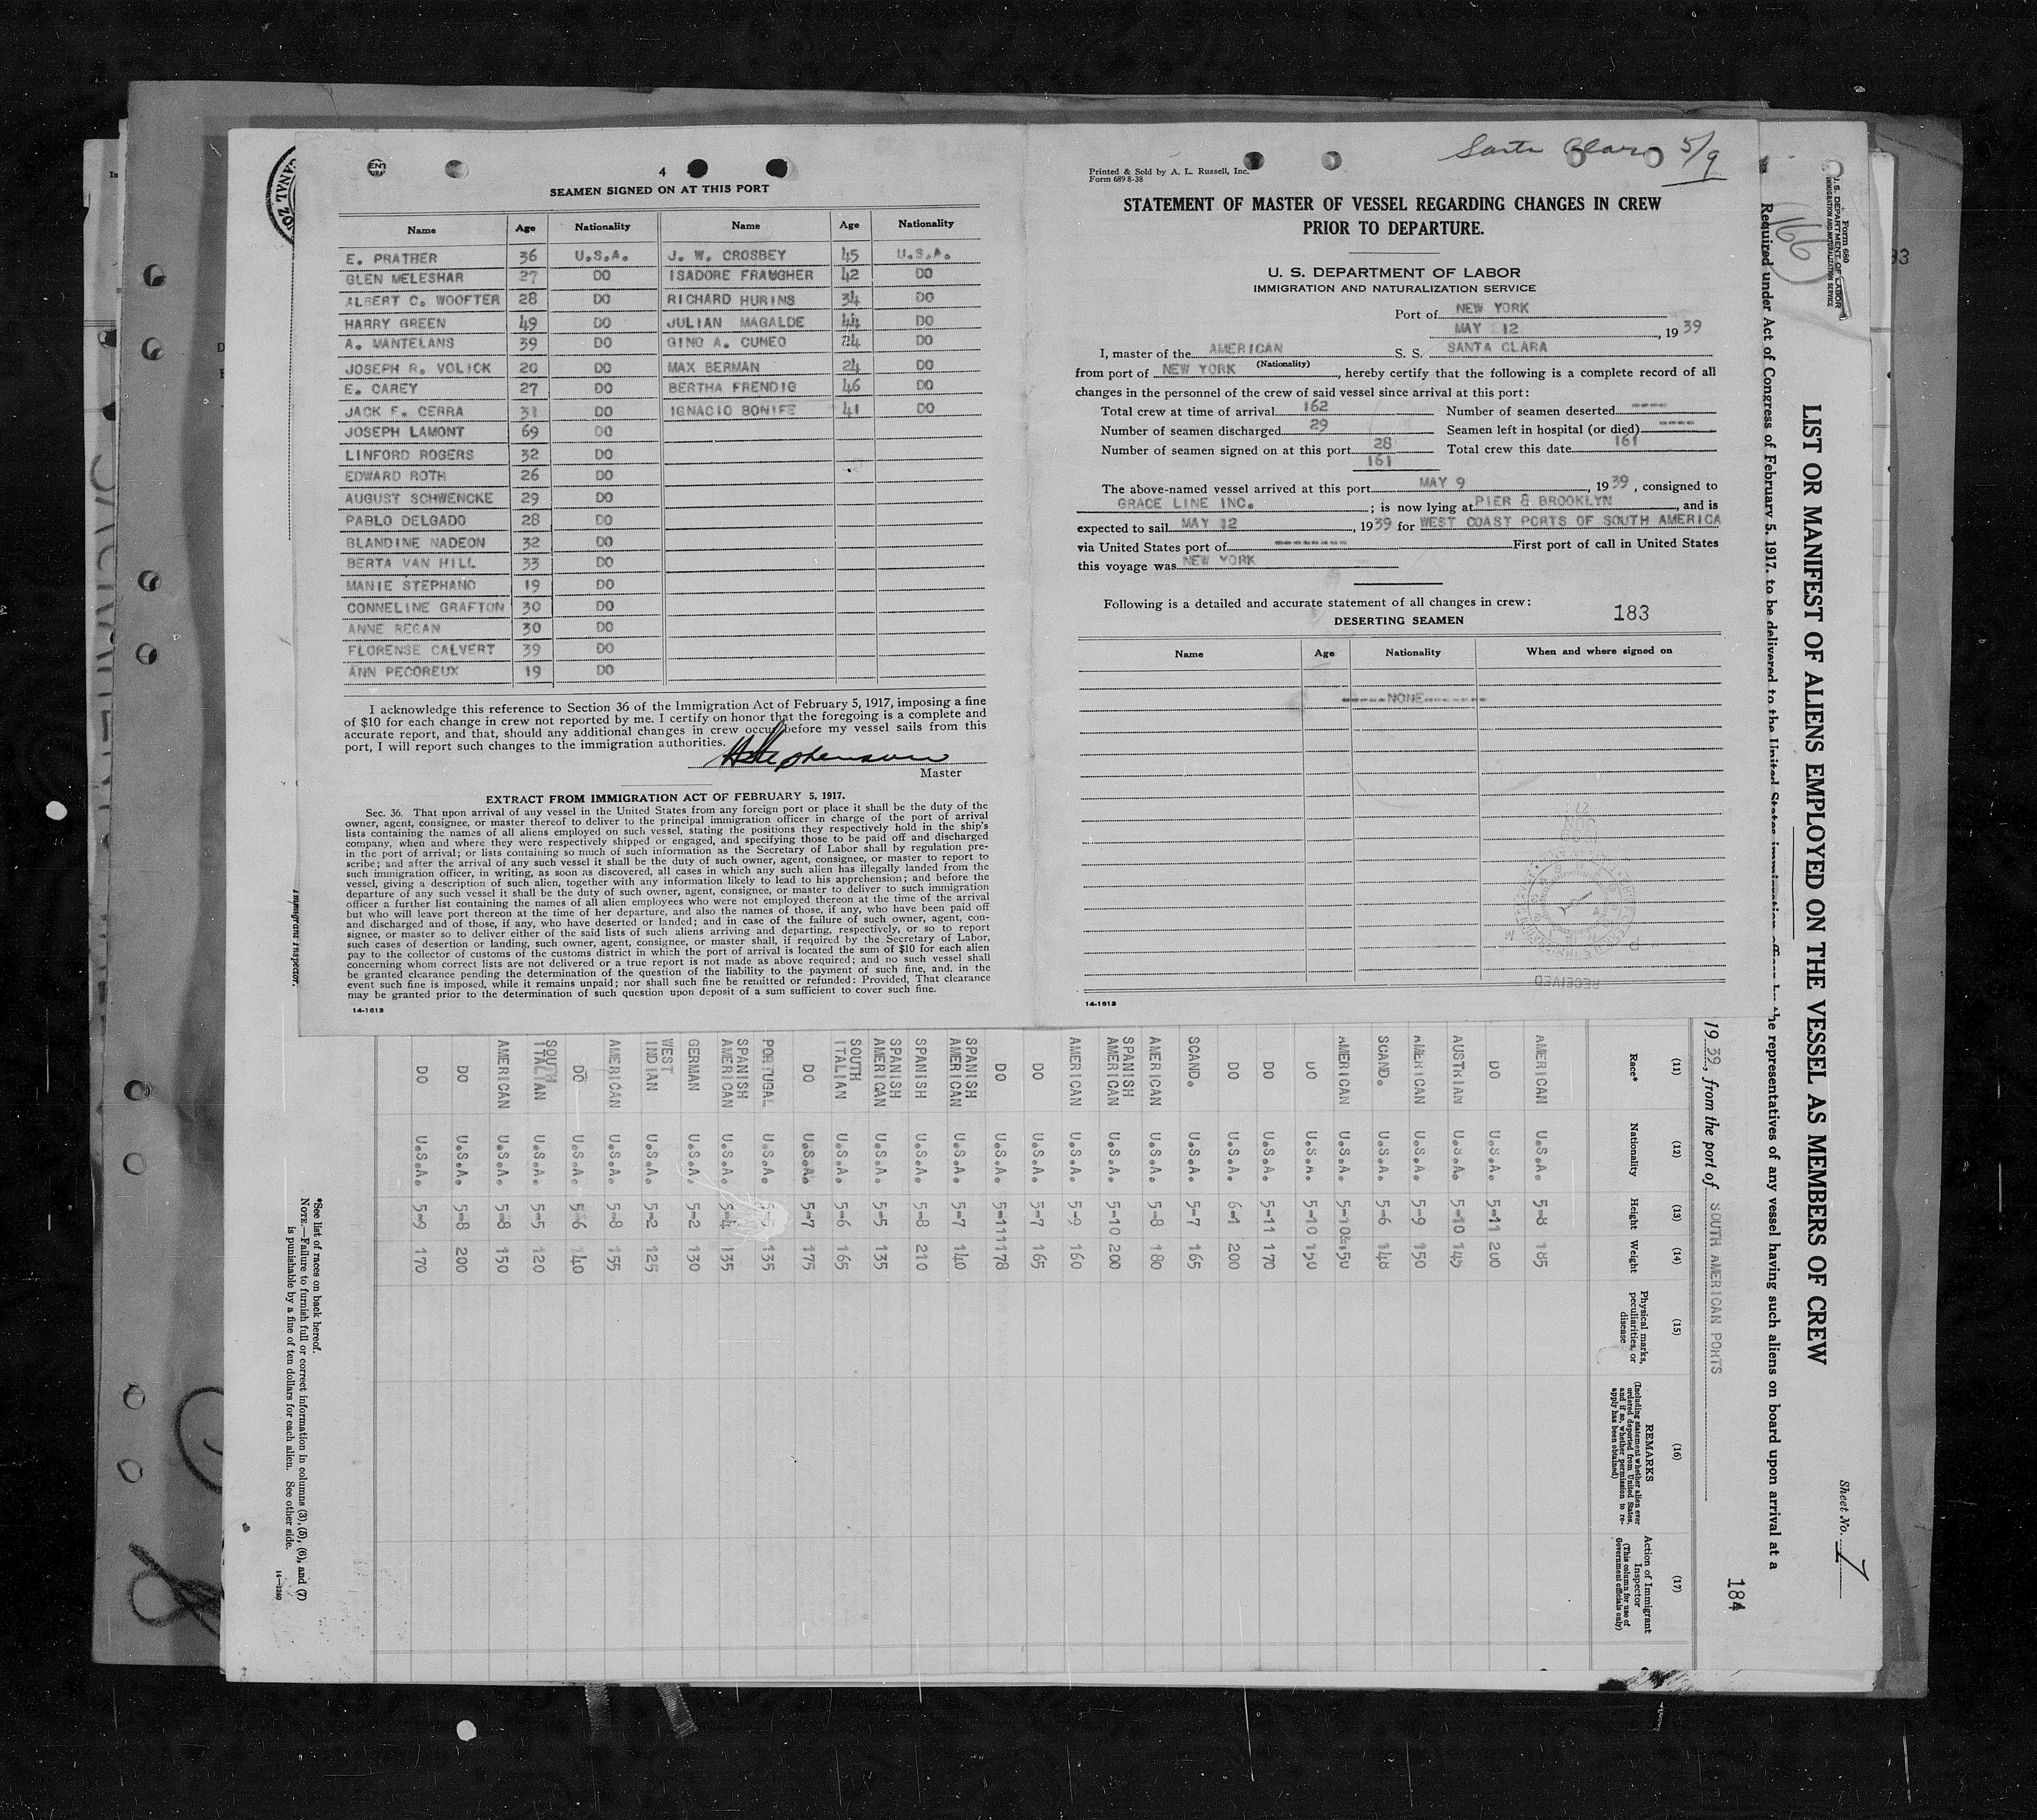 4
SEAMEN SIGNED ON AT THIS PORT
Name Age Nationality Name Age Nationality
E. PRATHER 36 U.S.A. J. W. CROSBEY 45 U.S.A.
GLEN MELESHAR 27 DO ISADORE FRAUGHER 42 DO
ALBERT C. WOOFTER 28 DO RICHARD HURINS 34 DO
HARRY GREEN 49 DO JULIAN MAGALDE 44 DO
A. MANTELANS 39 DO GINO A. CUNEO 24 DO
JOSEPH R. VOLICK 20 DO MAX BERMAN 24 DO
E. CAREY 27 DO BERTHA FRENDIG 46 DO
JACK F. CERRA 31 DO IGNACIO BONIFE 41 DO
JOSEPH LAMONT 69 DO
LINFORD ROGERS 32 DO
EDWARD ROTH 26 DO
AUGUST SCHWENCKE 29 DO
PABLO DELGADO 28 DO
BLANDINE NADEON 32 DO
BERTA VAN HILL 33 DO
MANIE STEPHANO 19 DO
CONNELINE GRAFTON 30 DO
ANNE REGAN 30 DO
FLORENSE CALVERT 39 DO
ANN PECOREUX 19 DO
I acknowledge this reference to Section 36 of the Immigration Act of February 5, 1917, imposing a fine
of $10 for each change in crew not reported by me. I certify on honor that the foregoing is a complete and
accurate report, and that, should any additional changes in crew occur before my vessel sails from this
port, I will report such changes to the immigration authorities.
Master
EXTRACT FROM IMMIGRATION ACT OF FEBRUARY 5, 1917.
Sec. 36. That upon arrival of any vessel in the United States from any foreign port or place it shall be the duty of the
owner, agent, consignee, or master thereof to deliver to the principal immigration officer in charge of the port of arrival
lists containing the names of all aliens employed on such vessel, stating the positions they respectively hold in the ship's
company, when and where they were respectively shipped or engaged, and specifying those to be paid off and discharged
in the port of arrival; or lists containing so much of such information as the Secretary of Labor shall by regulation pre-
scribe; and after the arrival of any such vessel it shall be the duty of such owner, agent, consignee, or master to report to
such immigration officer, in writing, as soon as discovered, all cases in which any such alien has illegally landed from the
vessel, giving a description of such alien, together with any information likely to lead to his apprehension; and before the
departure of any such vessel it shall be the duty of such owner, agent, consignee, or master to deliver to such immigration
officer a further list containing the names of all alien employees who were not employed thereon at the time of the arrival
but who will leave port thereon at the time of her departure, and also the names of those, if any, who have been paid off
and discharged and of those, if any, who have deserted or landed; and in case of the failure of such owner, agent, con-
signee, or master so to deliver either of the said lists of such aliens arriving and departing, respectively, or so to report
such cases of desertion or landing, such owner, agent, consignee, or master shall, if required by the Secretary of Labor,
pay to the collector of customs of the customs district in which the port of arrival is located the sum of $10 for each alien
concerning whom correct lists are not delivered or a true report is not made as above required; and no such vessel shall
be granted clearance pending the determination of the question of the liability to the payment of such fine, and, in the
event such fine is imposed, while it remains unpaid; nor shall such fine be remitted or refunded: Provided, That clearance
may be granted prior to the determination of such question upon deposit of a sum sufficient to cover such fine.
14-1613
Santa Clara 5/9
Printed & Sold by A. L. Russell, Inc.
Form 689 8-38
STATEMENT OF MASTER OF VESSEL REGARDING CHANGES IN CREW
PRIOR TO DEPARTURE.
U. S. DEPARTMENT OF LABOR
IMMIGRATION AND NATURALIZATION SERVICE
Port of NEW YORK
MAY 12, 1939
I, master of the AMERICAN S. S. SANTA CLARA
(Nationality)
from port of NEW YORK, hereby certify that the following is a complete record of all
changes in the personnel of the crew of said vessel since arrival at this port:
Total crew at time of arrival 162 Number of seamen deserted ----
Number of seamen discharged 29 Seamen left in hospital (or died) ----
Number of seamen signed on at this port 28 Total crew this date 161
161
The above-named vessel arrived at this port MAY 9, 1939, consigned to
GRACE LINE INC.; is now lying at PIER 8 BROOKLYN, and is
expected to sail MAY 12, 1939 for WEST COAST PORTS OF SOUTH AMERICA
via United States port of -------- First port of call in United States
this voyage was NEW YORK
Following is a detailed and accurate statement of all changes in crew: 183
DESERTING SEAMEN
Name Age Nationality When and where signed on
------NONE--------
RECEIVED
14-1613
CANAL ZO
Immigrant Inspector.
93
Form 680
U. S. DEPARTMENT OF LABOR
IMMIGRATION AND NATURALIZATION SERVICE
(166)
Sheet No. 7
LIST OR MANIFEST OF ALIENS EMPLOYED ON THE VESSEL AS MEMBERS OF CREW
Required under Act of Congress of February 5, 1917, to be delivered to the United States immigration officer by the representatives of any vessel having such aliens on board upon arrival at a
184
1939, from the port of SOUTH AMERICAN PORTS
(11) (12) (13) (14) (15) (16) (17)
Race* Nationality Height Weight Physical marks, peculiarities, or disease REMARKS (Including statement whether alien ever ordered deported from United States, and if so, whether permission to re-apply has been obtained) Action of Immigrant Inspector (This column for use of Government officials only)
AMERICAN U.S.A. 5-8 185
DO U.S.A. 5-11 200
AUSTRIAN U.S.A. 5-10 145
AMERICAN U.S.A. 5-9 150
SCAND. U.S.A. 5-6 148
AMERICAN U.S.A. 5-10½ 150
DO U.S.A. 5-10 150
DO U.S.A. 5-11 170
DO U.S.A. 6-1 200
SCAND. U.S.A. 5-7 165
AMERICAN U.S.A. 5-8 180
SPANISH AMERICAN U.S.A. 5-10 200
AMERICAN U.S.A. 5-9 160
DO U.S.A. 5-7 165
DO U.S.A. 5-11 178
SPANISH AMERICAN U.S.A. 5-7 140
SPANISH U.S.A. 5-8 210
SPANISH AMERICAN U.S.A. 5-5 135
SOUTH ITALIAN U.S.A. 5-6 165
DO U.S.A. 5-7 175
PORTUGAL U.S.A. 135
SPANISH AMERICAN U.S.A. 5-4 135
GERMAN U.S.A. 5-2 130
WEST INDIAN U.S.A. 5-2 125
AMERICAN U.S.A. 5-8 155
DO U.S.A. 5-6 140
SOUTH ITALIAN U.S.A. 5-5 120
AMERICAN U.S.A. 5-8 150
DO U.S.A. 5-8 200
DO U.S.A. 5-9 170
*See list of races on back hereof.
NOTE.—Failure to furnish full or correct information in columns (3), (5), (6), and (7)
is punishable by a fine of ten dollars for each alien. See other side.
14—1240